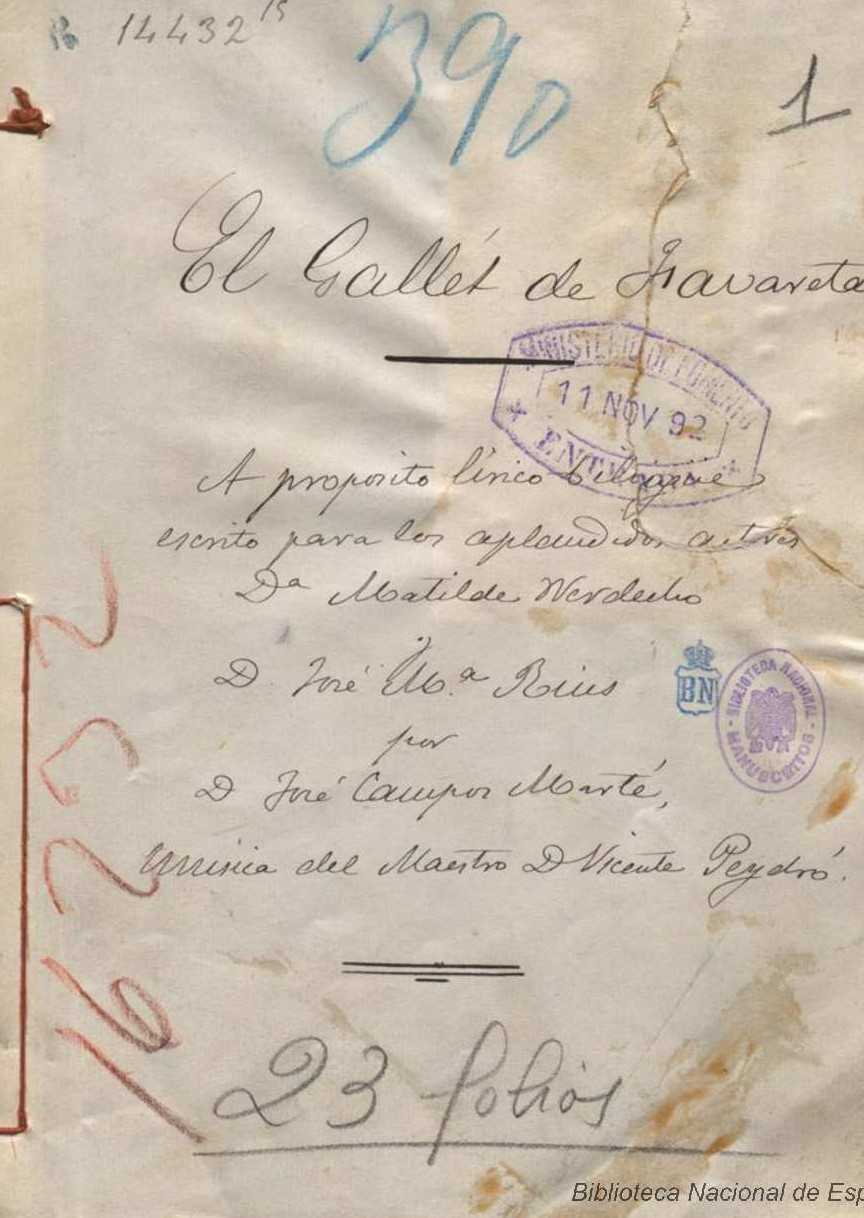 14432 15
390
1
El Gallét de Favareta
MINISTERIO DE FOMENTO
11 NOV 92
ENTRADA
A proposito lírico bilingüe
escrito para los aplaudidos actores
Dª Matilde Verdecho
D. José Mª Rius
BN
BIBLIOTECA NACIONAL
MANUSCRITOS
por
D José Campos Marté,
Música del Maestro D Vicente Peydró.
23 folios
Biblioteca Nacional de Esp